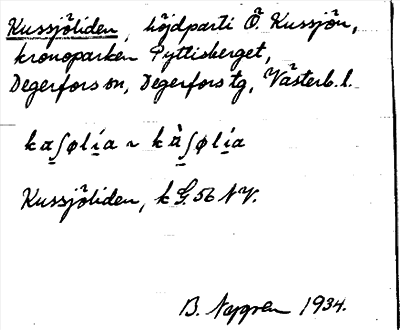 Kussjöliden, höjdparti Ö Kussjön,
kronoparken Pyttisberget,
Degerfors sn, Degerfors tg, Västerb. l.
kaʃølía ~ kàʃølía
Kussjöliden, k G. 56 NV.
B. Nygren 1934.